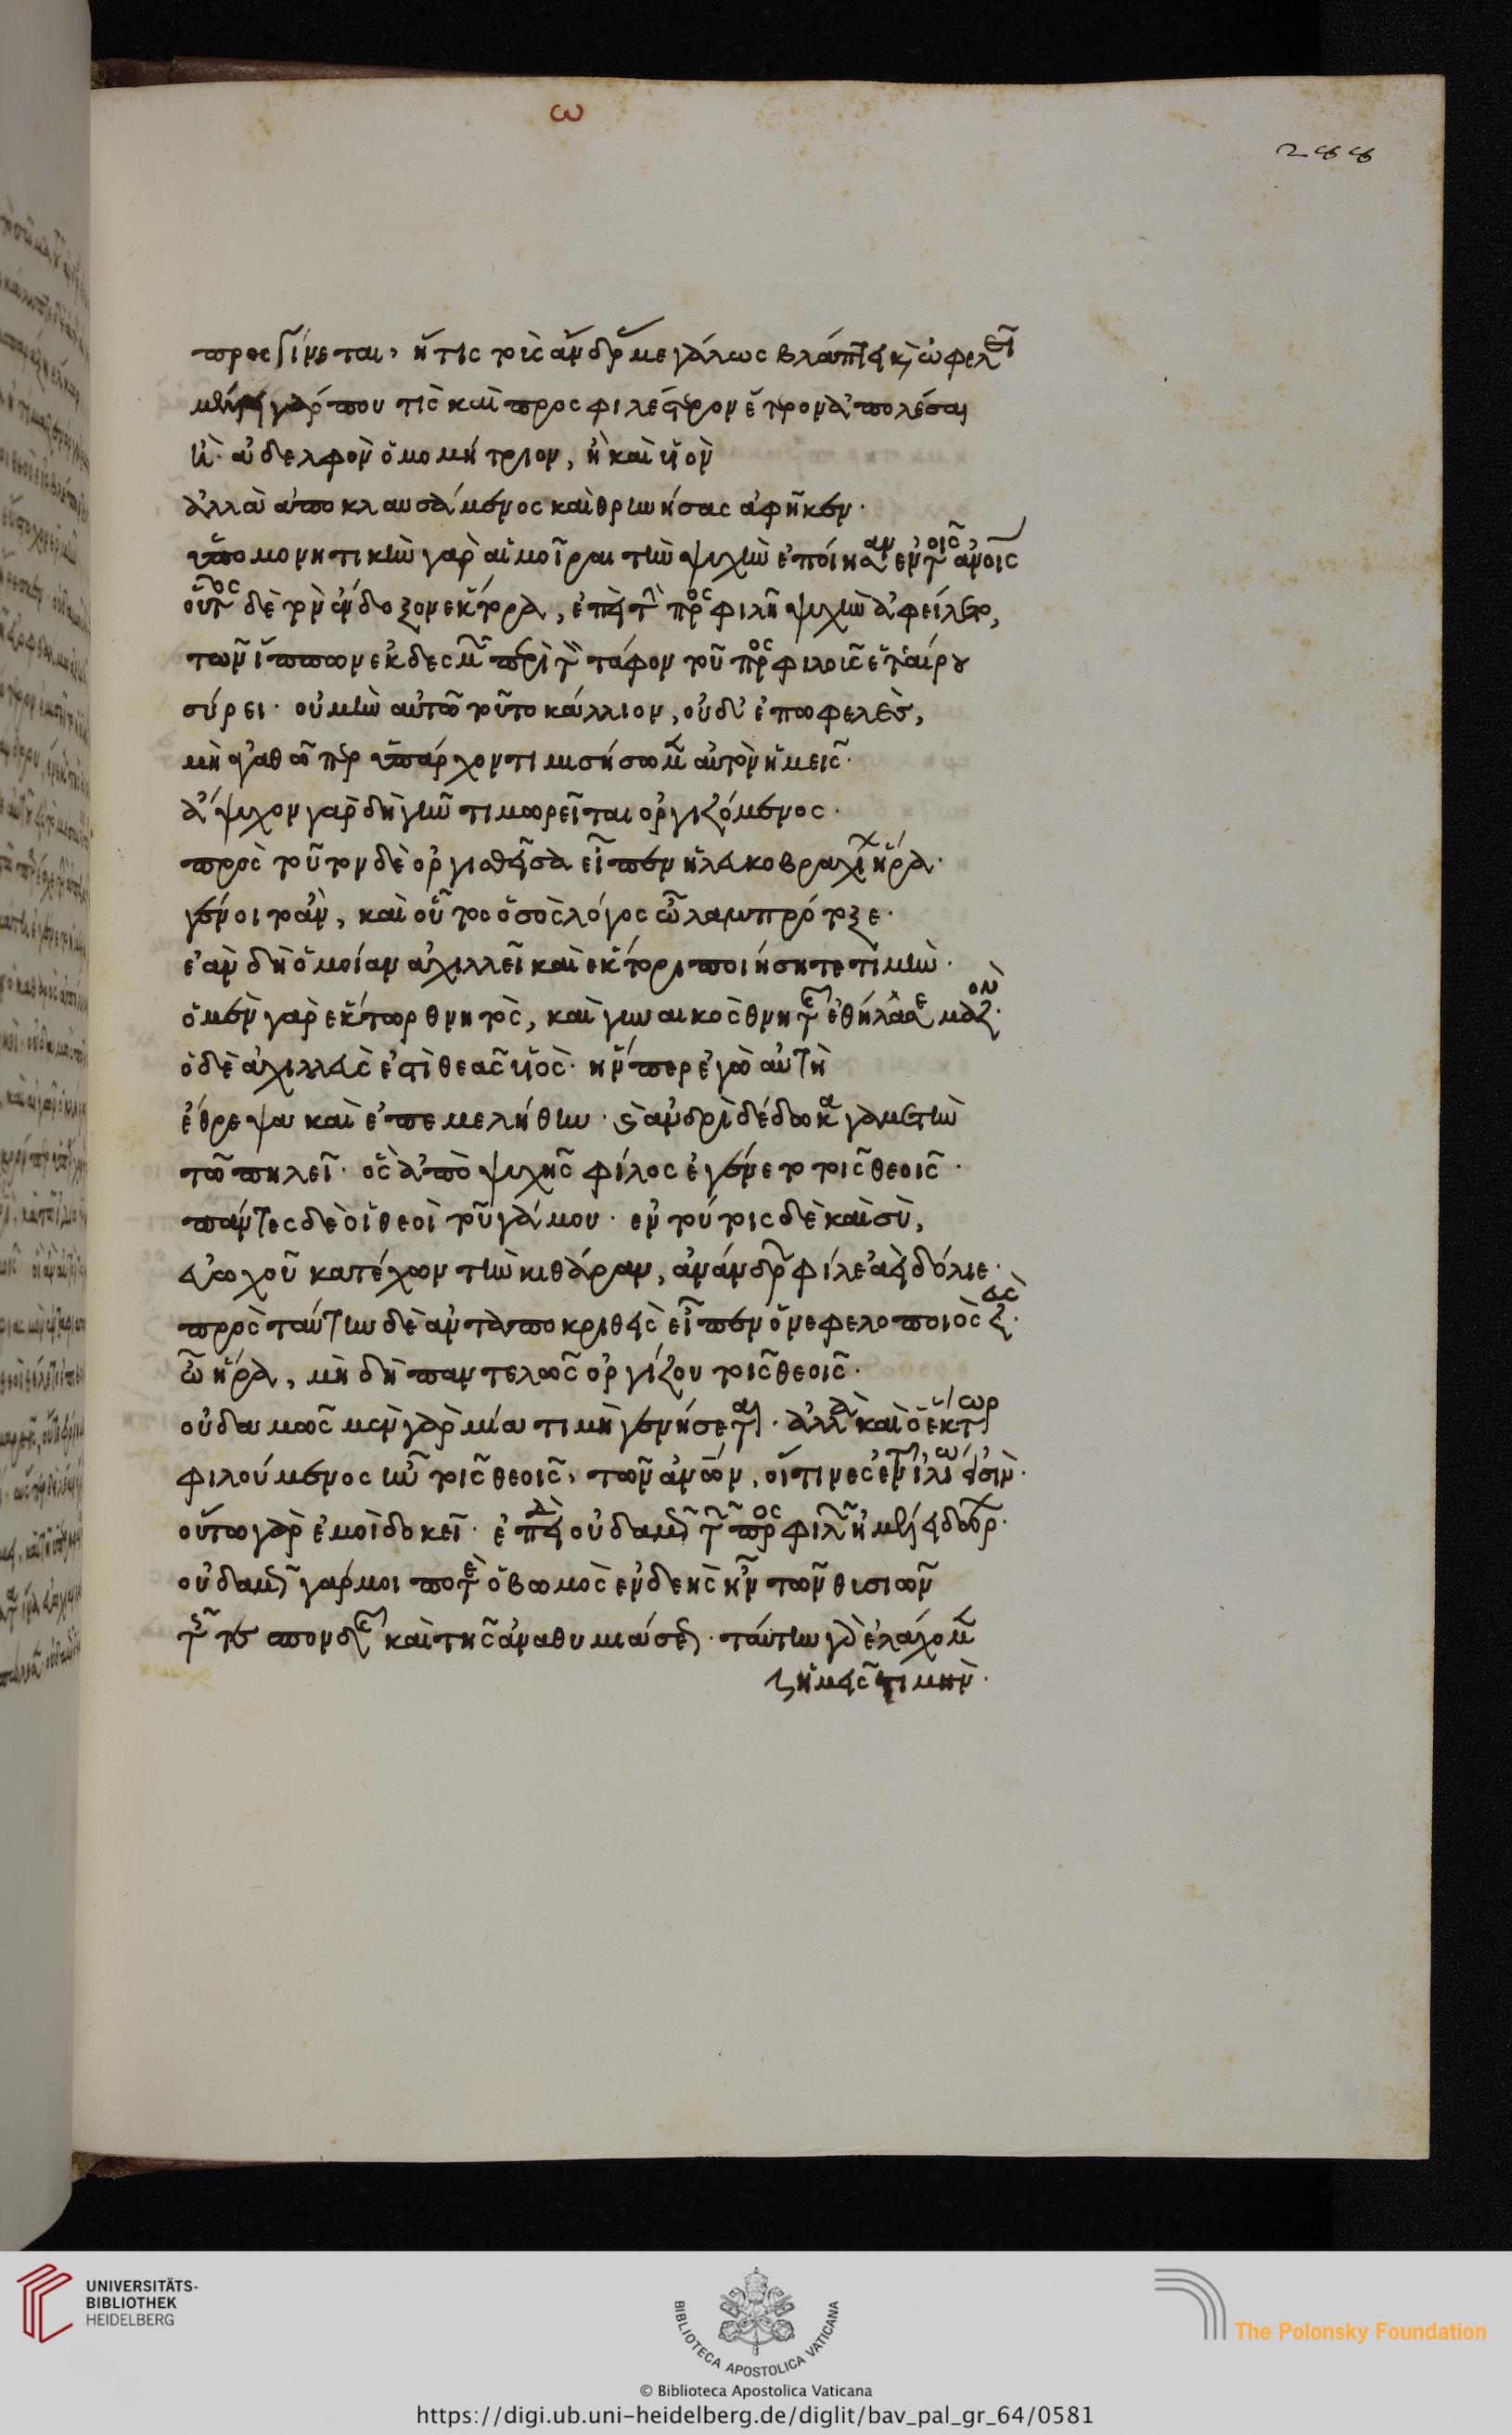 ω
288
προσγίνεται, ἥτις τοῖς ἄνδρας μεγάλως βλάπτει καὶ ὠφελεῖ
μέλλει γάρ που τὶς καὶ προσφιλέστερον ἕτερον ἀπολέσαι
ἢ ἀδελφὸν ὁμομήτριον, ἢ καὶ υἱὸν
ἀλλὰ ἀποκλαυσάμενος καὶ θρηνήσας ἀφῆκεν.
ὑπομονητικὴν γὰρ αἱ μοῖραι τὴν ψυχὴν ἐποίησαν ἐν τοῖς ἀνοις
οὗτος δὲ τὸν ἔνδοξον ἕκτορα, ἐπεὶ τὴν προσφιλῆ ψυχὴν ἀφείλετο,
τῶν ἵππων ἐκδεσμῶν περὶ τὸν τάφον τοῦ προσφιλοῦς ἑταίρου
σύρει. οὐ μὴν αὐτῶ τοῦτο κάλλιον, οὐδ' ἐπωφελὲς,
μὴ ἀγαθῶ περ ὑπάρχοντι μισήσωμεν αὐτὸν ἡμεῖς.
ἄψυχον γὰρ δὴ γῆν τιμωρεῖται ὀργιζόμενος.
πρὸς τοῦτον δὲ ὀργισθεῖσα εἶπεν ἡ λευκοβραχίων ἥρα.
γένοιτο ἂν, καὶ οὗτος ὁ σὸς λόγος ὦ λαμπρότοξε.
ἐὰν δὴ ὁμοίαν ἀχιλλεῖ καὶ ἕκτορι ποιήσητε τιμὴν.
ὁ μὲν γὰρ ἕκτωρ θνητὸς, καὶ γυναικὸς θνητῆς ἐθήλασε μαζόν.
ὁ δὲ ἀχιλλεὺς ἐστὶ θεᾶς υἱὸς. ἥν περ ἐγὼ αὐτὴ
ἔθρεψα καὶ ἐπεμελήθην. καὶ ἀνδρὶ δέδωκα γαμετὴν
τῶ πηλεῖ. ὃς ἀπὸ ψυχῆς φίλος ἐγένετο τοῖς θεοῖς.
πάντες δὲ οἱ θεοὶ τοῦ γάμου. ἐν τούτοις δὲ καὶ σὺ,
εὐωχοῦ κατέχων τὴν κιθάραν, ἀνάνδρων φίλε ἀεὶ δόλιε.
πρὸς ταύτην δὲ ἀνταποκριθεὶς εἶπεν ὁ νεφελοποιὸς ζεύς.
ὦ ἥρα, μὴ δὴ παντελῶς ὀργίζου τοῖς θεοῖς.
οὐδαμῶς μὲν γὰρ μία τιμὴ γενήσεται. ἀλλὰ καὶ ὁ ἕκτωρ
φιλούμενος ἦν τοῖς θεοῖς, τῶν ἀνῶν, οἵτινες ἐν τῇ ἰλίω εἰσὶν.
οὕτω γὰρ ἐμοὶ δοκεῖ. ἐπειδὴ οὐδαμῶς τῶν προσφιλῶν
οὐδαμῶς γάρ μοι ποτὲ ὁ βωμὸς ἐνδεὴς ἦν τῶν θυσιῶν
τῆς τε σπονδῆς καὶ τῆς ἀναθυμιάσεως. ταύτην γὰρ ἐλάχομεν
ἡμεῖς τιμὴν.
UNIVERSITÄTS-
BIBLIOTHEK
HEIDELBERG
BIBLIOTECA APOSTOLICA VATICANA
The Polonsky Foundation
© Biblioteca Apostolica Vaticana
https://digi.ub.uni-heidelberg.de/diglit/bav_pal_gr_64/0581